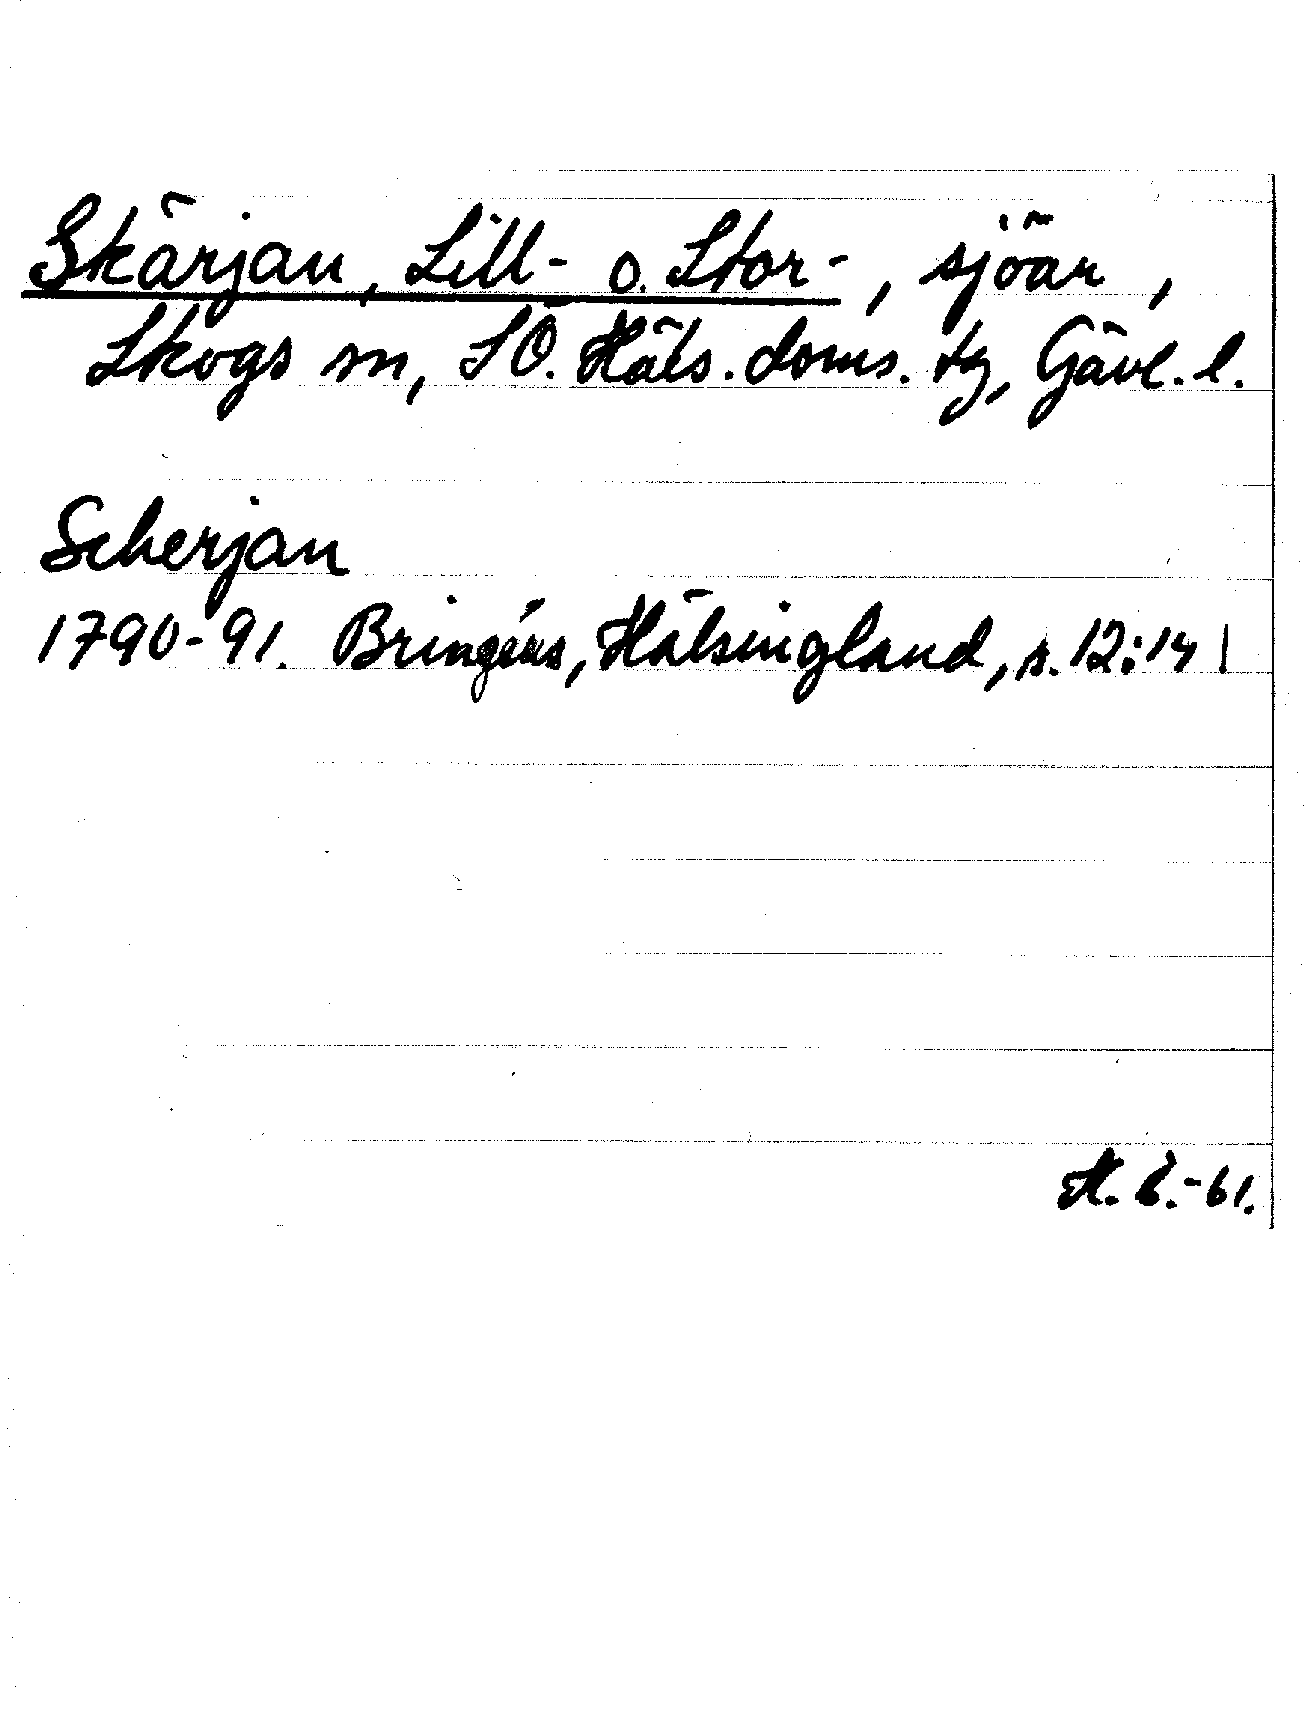 Skärjan, Lill- o. Stor-, sjöar,
Skogs sn, SÖ. Häls. doms. tg, Gävl. l.
Scherjan
1790-91. Bringéus, Hälsingland, s. 12:14
-61.